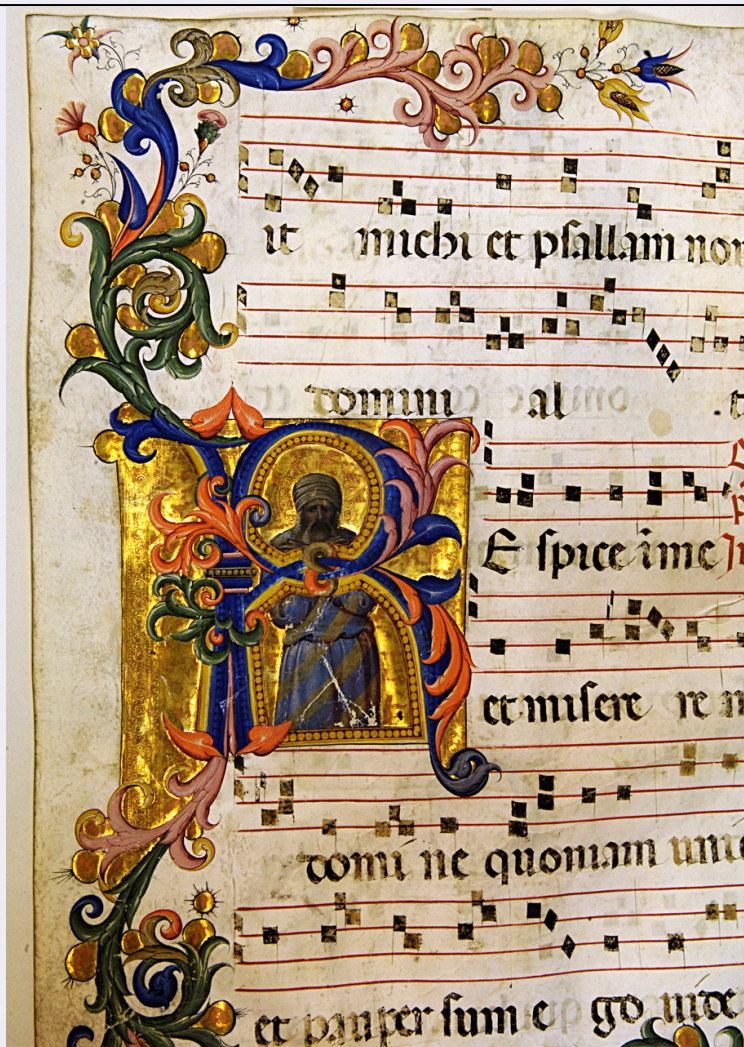 it michi et psallam nom
domini al
R E spice ī me
et misere re m
domi ne quoniam uni
et pauper sum e go uide